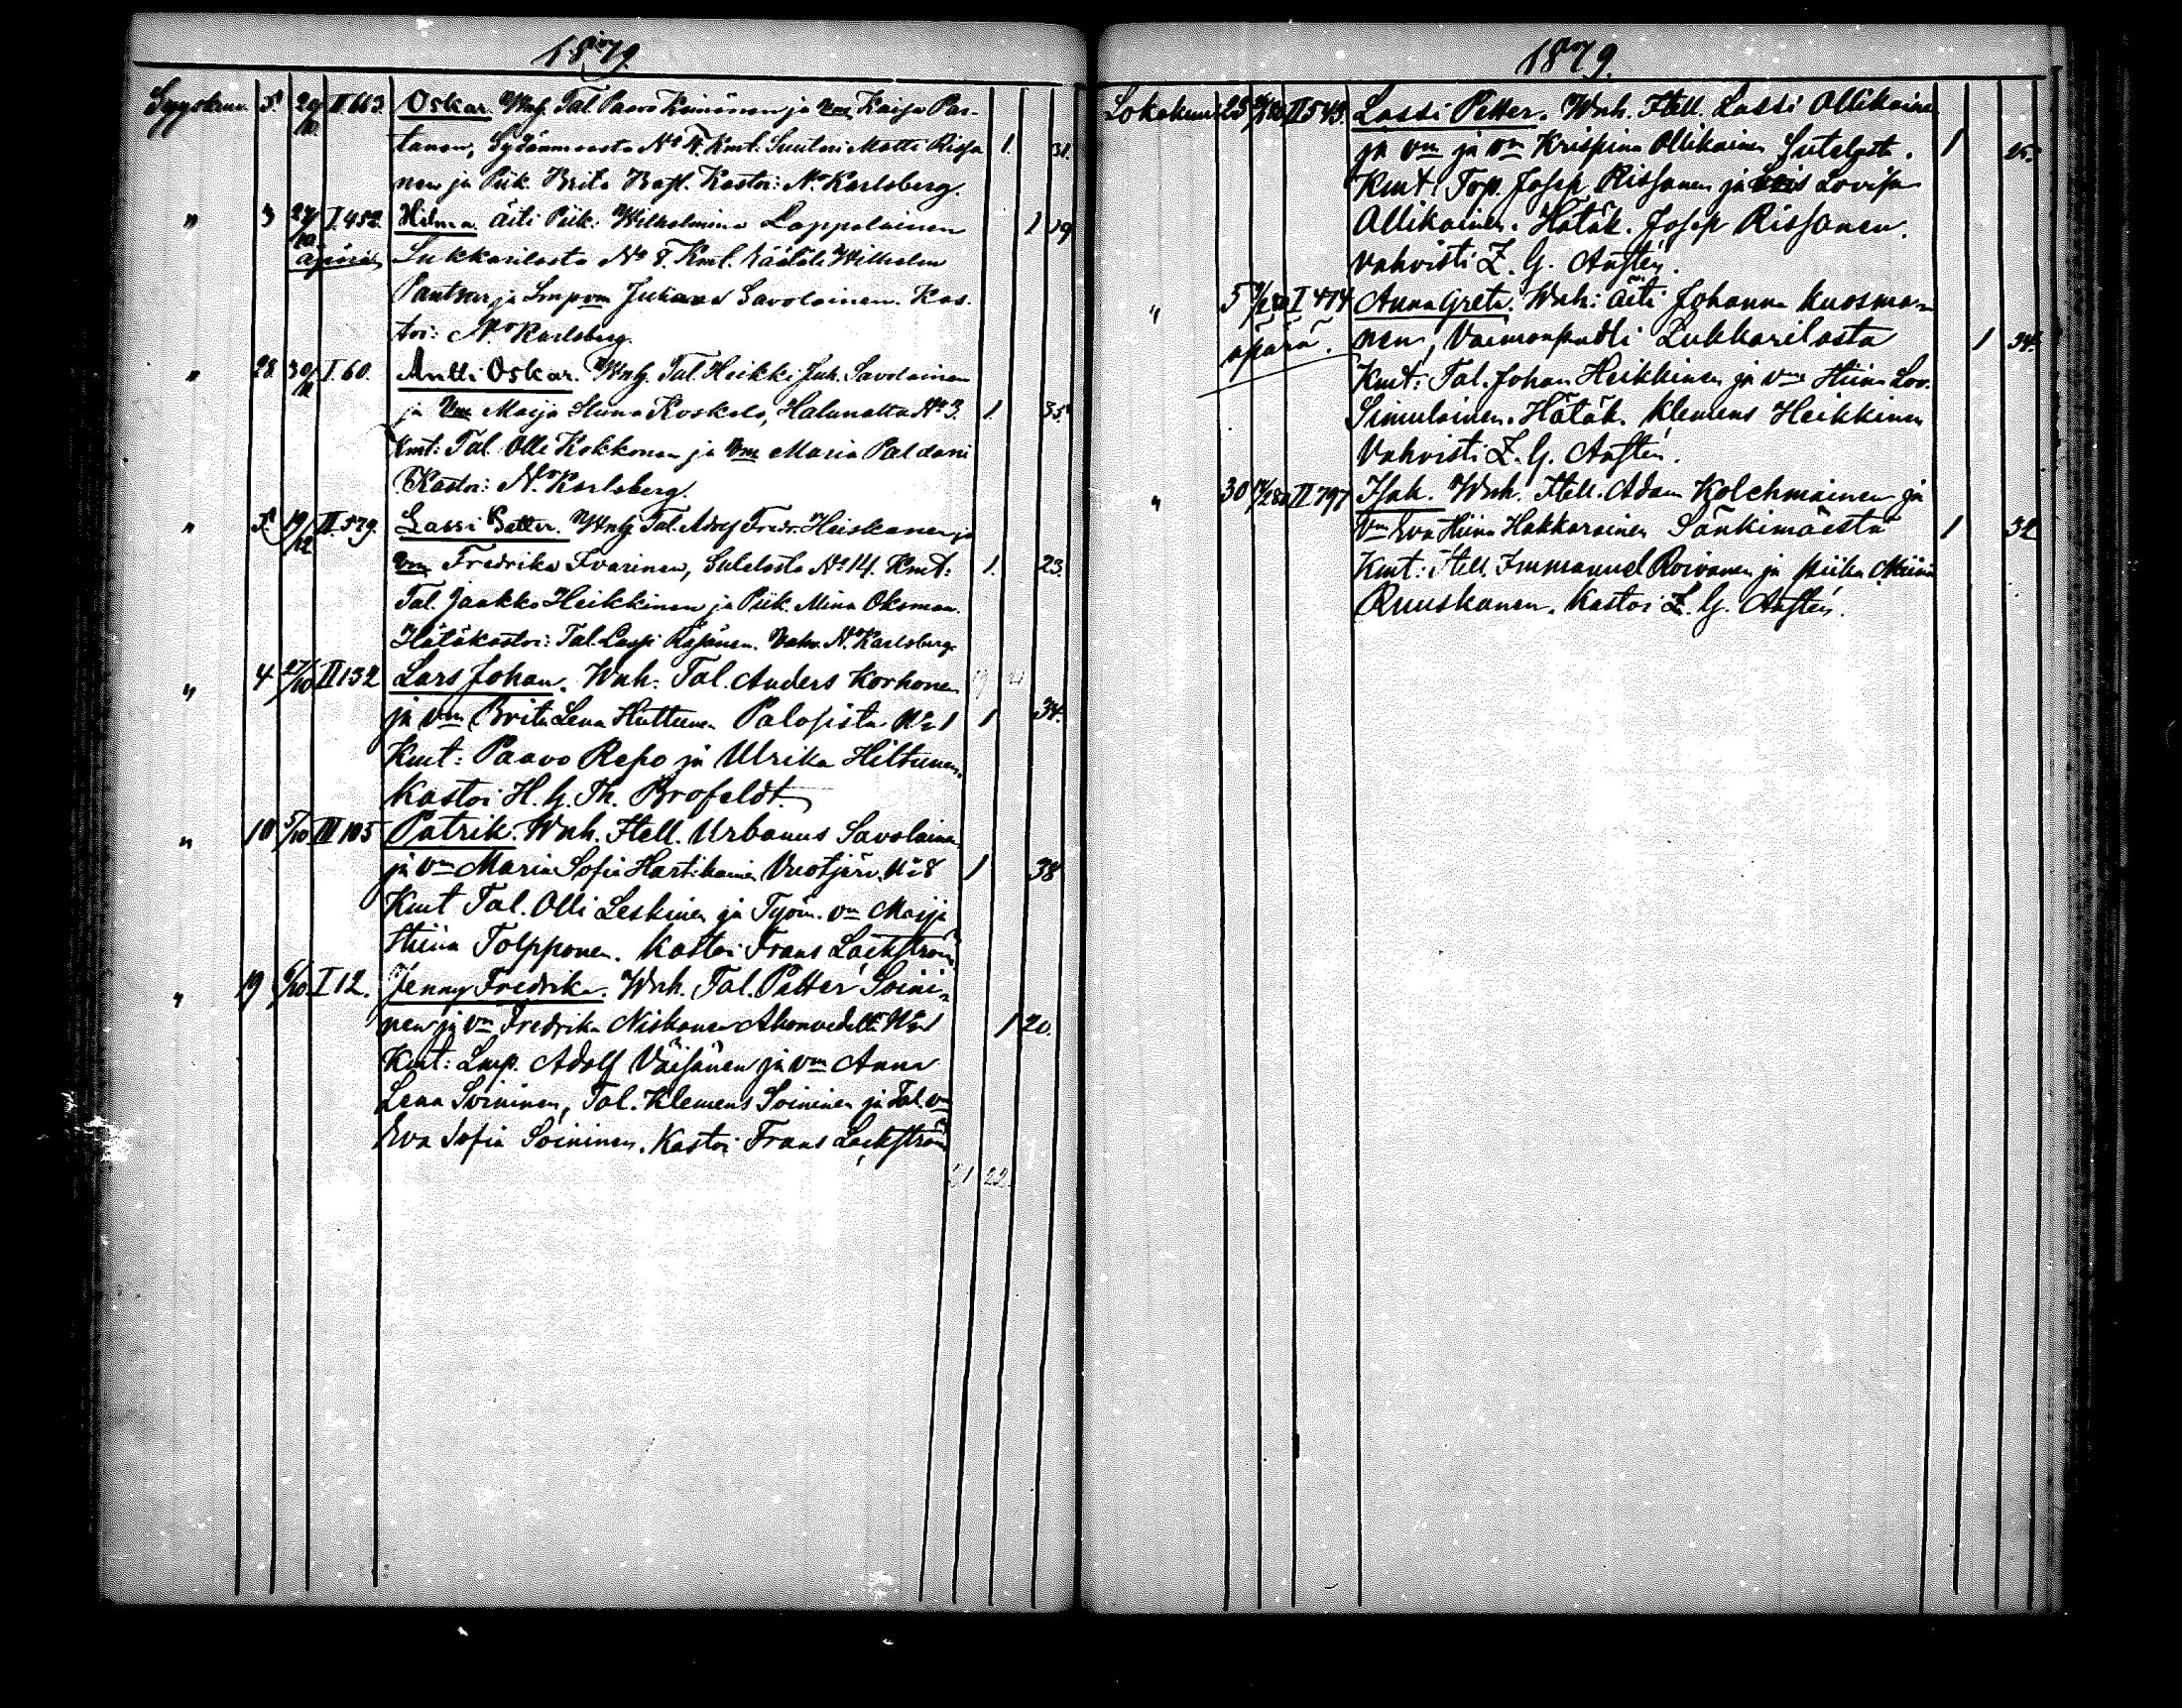 1879.
Syyskuu 5 29/10 II.663. Oskar. Wnh. Tal. Paavo Keinönen ja Vm Kaisa Par-
tanen, Sydänmaasta No Kmt. Suutari Matti Rissa
nen ja Piik. Brita Kastoi: N. Karlsberg.
" 3 27/10 I.452. Hilma. äiti Piik. Wilhelmina Lappalainen 1 29
äpärä Lukkarilasta No 8. Kmt. Räätäli Wilhelm
Pantsar ja Lmp vm Juliana Savolainen. Kas-
toi: N. Karlsberg.
" 28 30/11 I.60. Antti Oskar. Wnh. Tal. Heikki Juh. Savolainen
ja Vm Maija Stiina Koskelo, Halunalta No 3. 1. 35.
Kmt: Tal. Olle Kokkonen ja Vm Maria Paldani
Kastoi: N. Karlsberg.
" 19/12 II.579. Lassi Petter. Wnh. Tal. Adolf Fredr. Heiskanen ja
Vm Fredrika Ivarinen, No 14. Kmt: 1. 23.
Tal. Jaakko Heikkinen ja Piik. Mina Oksman.
Hätäkastoi: Tal. Lassi Räsänen. Vahv. N. Karlsberg.
" 4 27/10 II 132 Lars Johan. Wnh. Tal. Anders Korhonen
ja vm Brita Lena Huttunen Palosista No 1 1 34.
Kmt: Paavo Repo ja Ulrika Hiltunen.
Kastoi H. G. Th. Brofeldt.
" 10 5/10 III 105 Patrik. Wnh. Itell. Urbanus Savolainen
ja vm Maria Sofia Hartikainen Vuotjärv. No 8 1 38
Kmt Tal. Olli Leskinen ja Työm. vm Maija
Stiina Tolpponen. Kastoi Frans Lackström
" 19 6/10 I 12. Jenny Fredrika. Wnh. Tal. Petter Soini-
nen ja vm Fredrika Niskanen Ahonvedeltä No 1 1 20.
Kmt: Lmp. Adolf Väisänen ja vm Anna
Lena Soininen, Tal. Klemens Soininen ja Tal. vm
Eva Sofia Soininen. Kastoi Frans Lackström
21 22.
1879.
Lokakuu 23 II 543. Lassi Petter. Wnh. Itell. Lassi Ollikainen
ja vm ja vm Krispina Ollikainen 1 25.
Kmt: Top. Josep Rissanen ja Lovisa
Ollikainen. Hätäk. Josep Rissanen.
vahvisti Z. G. Austén.
" 5 I 474 Anna Greta. Wnh: äiti Johanna Kuosma-
äpärä. nen, Vaimonpuoli Lukkarilasta 1 34.
Kmt: Tal. Johan Heikkinen ja vm Stiina Lov.
Simulainen. Hätäk. Klemens Heikkinen
Vahvisti Z. G. Austén.
" 30 II 797 Isak. Wnh. Itell. Adam Kolehmainen ja
Vm Eva Stiina Hakkarainen Sänkimäestä 1 32
Kmt: Itell. Immanuel Roivanen ja piika Miina
Ruuskanen. Kastoi Z. G. Austén.